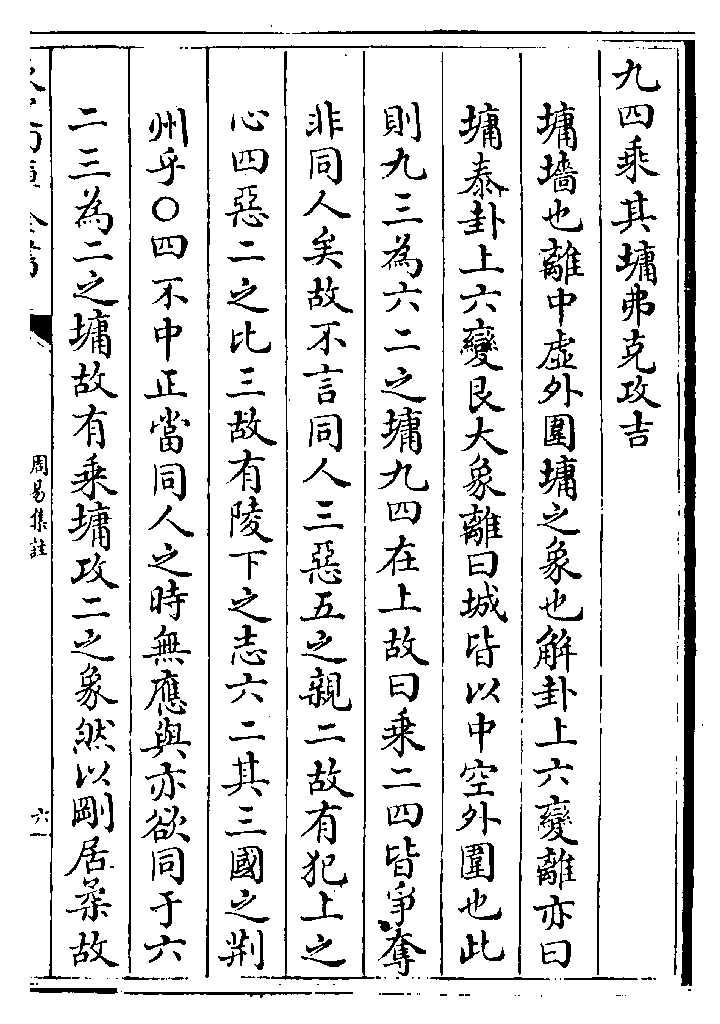 九四乘其墉弗克攻吉
墉墻也離中虛外圍墉之象也解卦上六變離亦曰
墉泰卦上六變艮大象離曰城皆以中空外圍也此
則九三為六二之墉九四在上故曰乘二四皆爭奪
非同人矣故不言同人三惡五之親二故有犯上之
心四惡二之比三故有陵下之志六二其三國之荆
州乎○四不中正當同人之時無應與亦欲同于六
二三為二之墉故有乘墉攻二之象然以剛居柔故
周易集註
六一